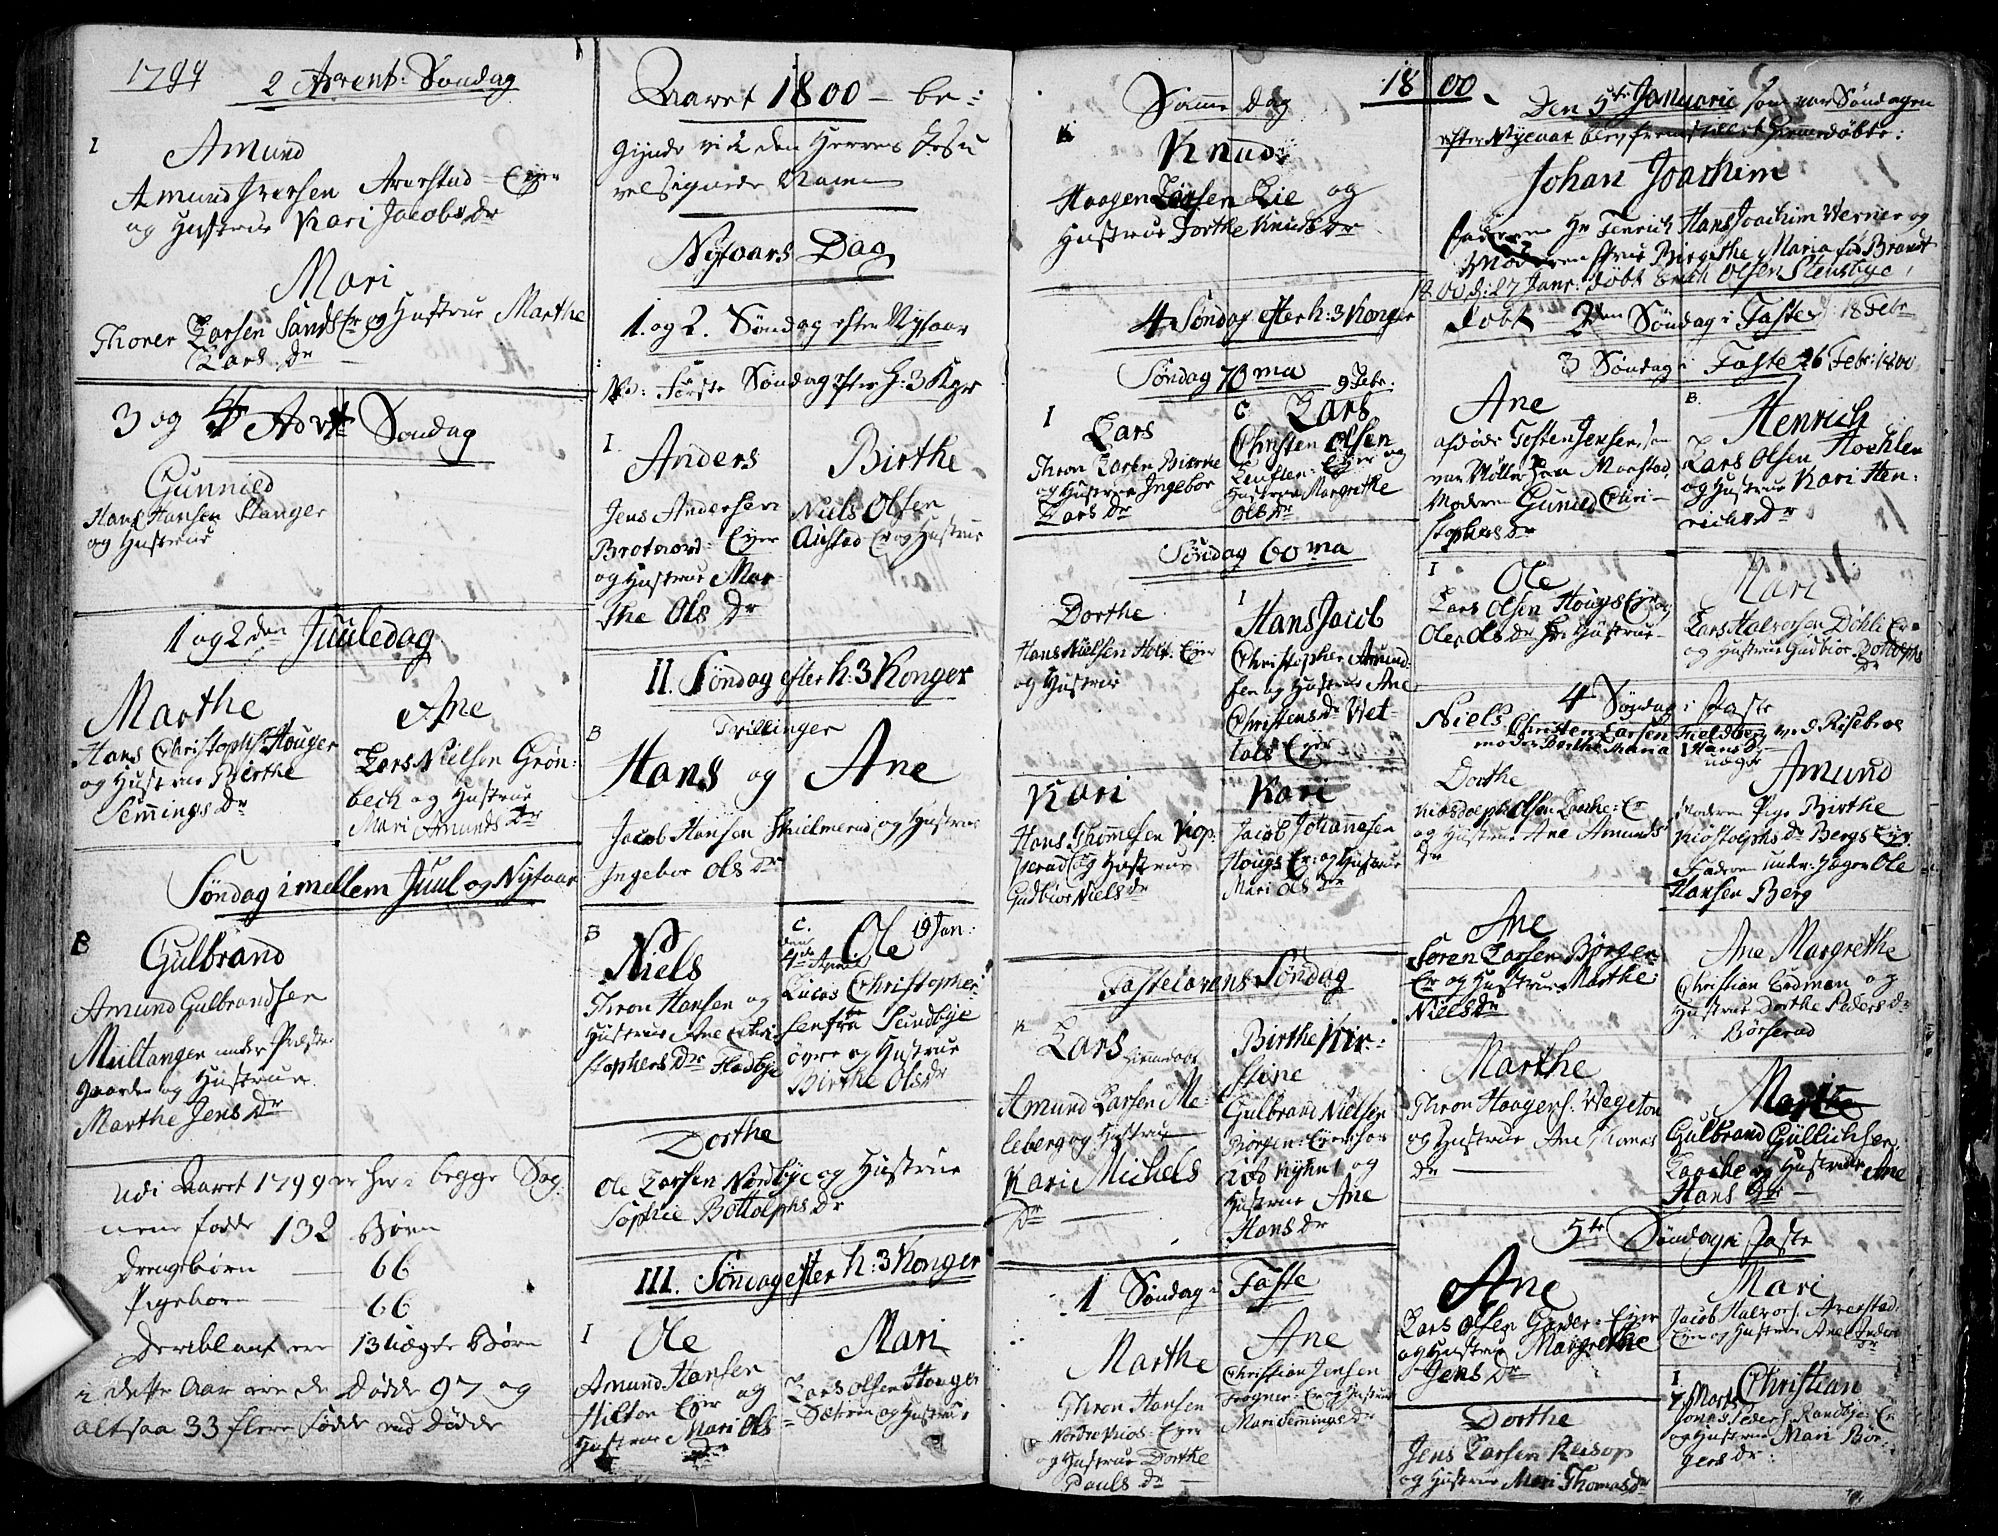 1799
2 Advent: Søndag
1
Amund
Amund Iversen Averstad Eyer
og Hustrue Kari Jacobs Dr
Mari
Thorer Larsen Sands Er og Hustrue Marthe
Lars Dr
3 og 4 Advt Søndag
Gunnild
Hans Hansen Stanger
og Hustrue
1 og 2den Juuledag
Marthe
Hans Christophs: Houger
og Hustrue Birthe
Semmings Dr
Ane
Lars Nielsen Grøn-
beck og Hustrue
Mari Amunds Dr
Søndag imellem Juul og Nytaar
B
Gulbrand
Amund Gulbrandsen
Miiltangen under Præste
gaarden og Hustrue
Marthe Jens Dr
udi Aaret 1799 er her i begge Sog
nene fødde 132 Børn
Drengebørn 66
Pigebørn 66
Deriblant ere 13 uægte Børn
i dette Aar ere de Dødde 97 og
altsaa 33 flere fødde end Dødde
Aaret 1800 be-
gynde vi i den Herres Jesu
velsignede Navn
Nytaars Dag
1. og 2. Søndag efter Nytaar
NB: Første Søndag efter H: 3 Kgr
1
Anders
Jens Andersen
Brotnord: Eyer
og Hustrue Mar-
the Ols Dr
Birthe
Niels Olsen
Aastad Er og Hustrue
II. Søndag efter h: 3 Konger
B
Tvillinger
Hans og Ane
Jacob Hansen Hielmerud og Hustrue
Ingebor Ols Dr
B
Niels
Thron Hansen og
Hustrue Ane Chri-
stophers Dr Fladbye
C.
den
4de April
Ole 19 Jan:
Lucas Christopher-
sen fra Sundbye
øvre og Hustrue
Birthe Ols Dr
Dorthe
Ole Larsen Nordbye og Hustrue
Sophie Bottolphs Dr
III. Søndag efter h: 3 Konger
1
Ole
Amund Hansen
Hilton Eyer og
Hustrue Mari Ols
Dr
Mari
Lars Olsen Houger
Sætren og Hustrue
Samme Dag
Knud
Haagen Larsen Lie og
Hustrue Dorthe Knuds Dr
4 Søndag efter h: 3 Konger
Søndag 70ma 9 Febr:
1
Lars
Thron Larsen Bierke
og Hustrue Ingebor
Lars Dr
C
Lars
Christen Olsen
Eyer og
Hustrue Margrethe
Ols Dr
Søndag 60ma
Dorthe
Hans Nielsen Holt: Eyer
og Hustrue
1
Hans Jacob
Christopher Amund-
sen og Hustrue Ane
Christens Dr Wet-
tals Eyer
Kari
Hans Thommesen Kop-
perud og Hustrue
Gudbior Niels Dr
Kari
Jacob Johannesen
Hougs Er: og Hustrue
Mari Ols Dr
Fastelavens Søndag
Lars hiemdøbt
Amund Larsen Me-
leberg og Hustrue
Kari Michels
Dr
Birthe Kir-
stine
Gulbrand Nielsen
Børgen: Eyer
og
Hustrue Ane
Hans Dr
1 Søndag i Faste
Marthe
Thron Hansen
Nordre Kios: Eyer
og Hustrue Dorthe
Pauls Dr
Ane
Christian Jensen
Frogner: Er og Hustrue
Mari Semings Dr
1800.
Den 5te Januarii som var Søndagen
efter Nyeaar blev fremstillet hiemedøbte:
Johan Joachim
Faderen Hr Fenrich Hans Joachim Werner og
Moderen Frue Birgethe Maria fød Brandt
1800 d: 27 Janr: døbt Erich Olsen Stensbye
Døbt 2den Søndag i Faste d: 18 Febr
3 Søndag i Faste 26 Febr: 1800
Ane
afdøde Tosten Jensen, som
var Møller fra Maastad
Moderen Gunild Chri-
stophers Dr
B.
Henrich
Lars Olsen Hoehlen
og Hustrue Kari Hen-
richs Dr
1
Ole
Lars Olsen Hougs Er og
Oles Ols Dr Hustrue
Mari
Lars Halvorsen Døhli Er:
og Hustrue Gudbior Bottolphs
Dr
4 Søndag i Faste
Niels Christen Larsen Fieldberg ved Risebroe
moder Dorthe Maria Hans Dr
uægte
Dorthe
Olsen Er
og Hustrue Ane Amunds
Dr
Amund
Moderen Pige Birthe
Kiostolphs Dr Bergs Eyr.
Faderen under: Hagen Ole
Hansen Berg
Ane
Søren Larsen Børger
Er og Hustrue Marthe
Niels Dr
Ane Margrethe
Christian Erdman og
Hustrue Dorthe Peders Dr
Børserud
Marthe
Thron Haagens: Wegeton
og Hustrue Ane Thores
Dr
Marthe
Gulbrand Gullichsen
og Hustrue Ane
Hans Dr
5te Søndag i Faste
Ane
Lars Olsen Garder: Eyer
og Hustrue Margrethe
Jens Dr
Mari
Jacob Halvors: Averstad
Eyer og Hustrue Ane Anders
Dr
Dorthe
Jens Larsen Reisop
og Hustrue Mari Thomas Dr
1
7 Marts Christian
Jonas Peders: Randbye: Er
og Hustrue Mari Bør-
gers Dr: